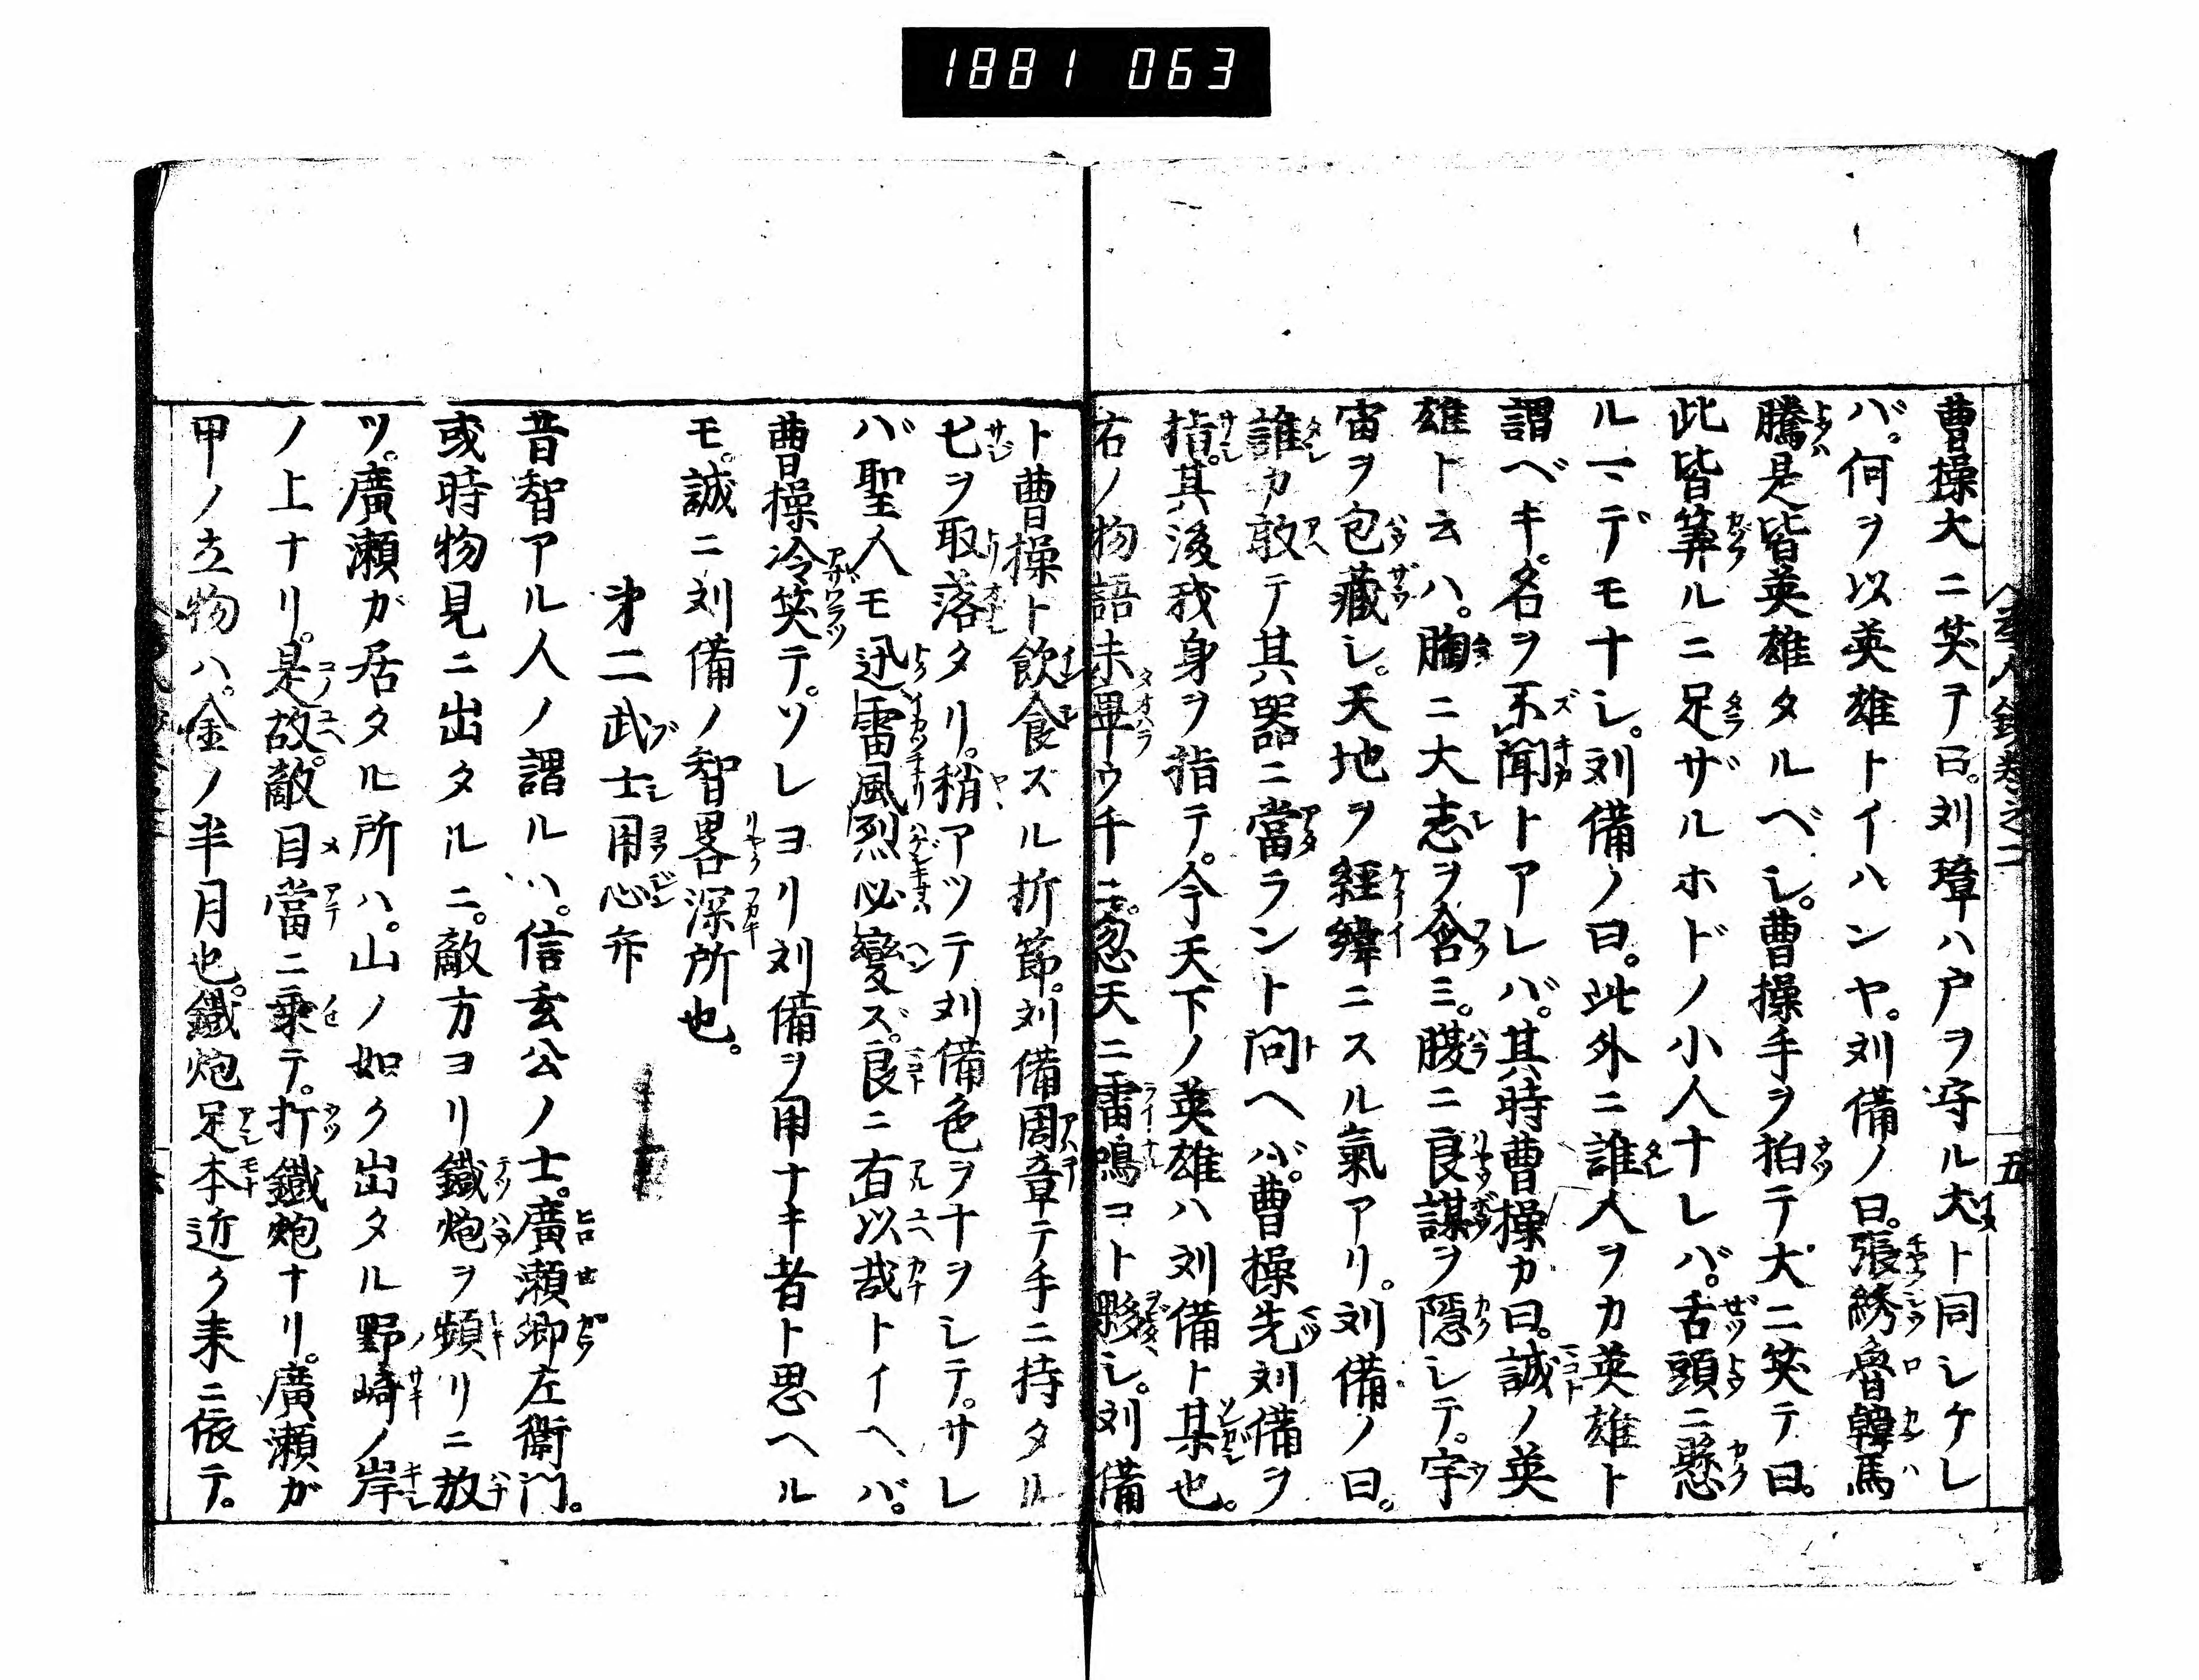 1881 063
五
曹操大ニ笑テ曰。刘璋ハ戸ヲ守ル犬ト同シケレ
バ。何ヲ以英雄トイハンヤ。刘備ノ曰。張綉魯韓馬
騰是皆英雄タルベシ。曹操手ヲ拍テ大ニ笑テ曰。
此皆筭ルニ足ザルホドノ小人ナレバ。舌頭ニ懸
ルマデモナシ。刘備ノ曰。此外ニ誰人ヲカ英雄ト
謂ベキ。名ヲ不聞トアレバ。其時曹操カ曰。誠ノ英
雄ト云ハ。胸ニ大志ヲ含ミ。腹ニ良謀ヲ隠シテ。宇
宙ヲ包藏シ。天地ヲ經緯ニスル氣アリ。刘備ノ曰。
誰カ敢テ其噐ニ當ラント問ヘバ。曹操先刘備ヲ
指。其後我身ヲ指テ。今天下ノ英雄ハ刘備ト某也。
右ノ物語未畢ウチニ。忽天ニ雷鳴コト夥シ。刘備
ト曹操ト飲食スル折節。刘備周章テ手ニ持タル
匕ヲ取落タリ。稍アツテ刘備色ヲナヲシテ。サレ
バ聖人モ迅雷風烈必變ズ。良ニ有以哉トイヘバ。
曹操冷笑テ。ソレヨリ刘備ヲ用ナキ者ト思ヘル
モ。誠ニ刘備ノ智畧深所也。
㐧二武士用心弁
昔智アル人ノ謂ルハ。信玄公ノ士。廣瀬郷左衛門。
或時物見ニ出タルニ。敵方ヨリ鐵炮ヲ頻リニ放
ツ。廣瀬ガ居タル所ハ。山ノ如ク出タル野崎ノ岸
ノ上ナリ。是故。敵目當ニ乗テ。折鐵炮ナリ。廣瀬ガ
甲ノ立物ハ。金ノ半月也。鐵炮足本近ク来ニ依テ。